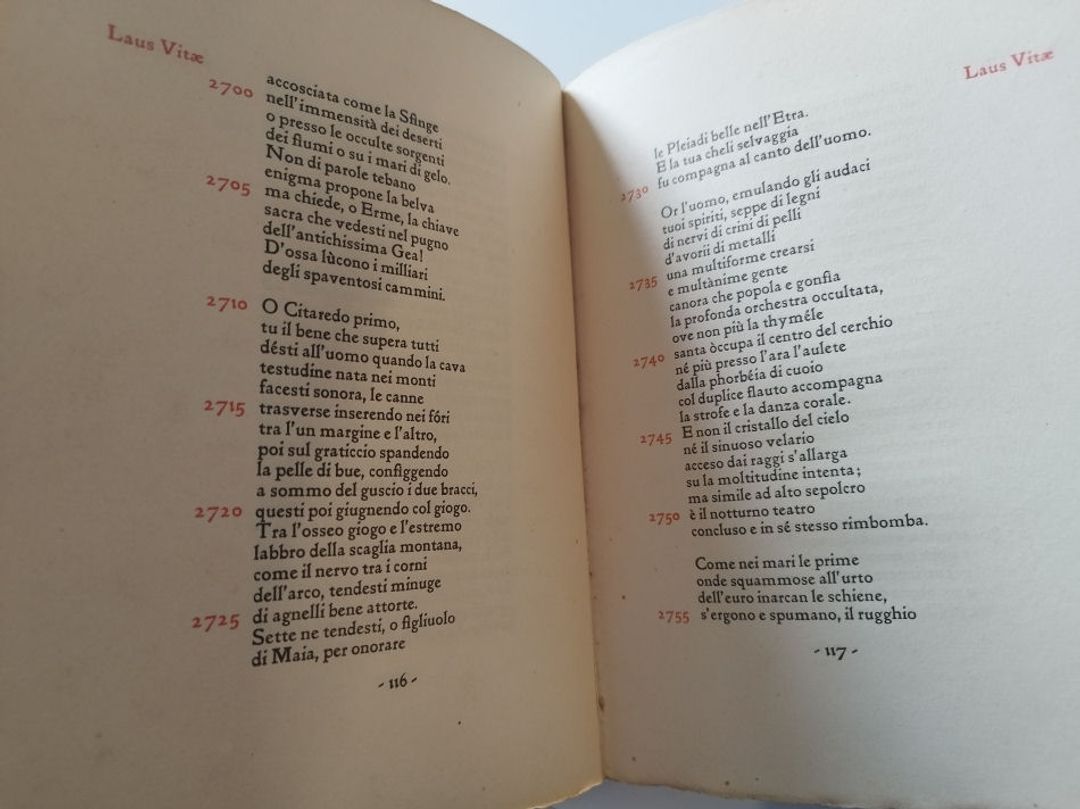 Laus Vitæ
accosciata come la Sfinge
2700 nell'immensità dei deserti
o presso le occulte sorgenti
dei fiumi o su i mari di gelo.
Non di parole tebano
enigma propone la belva
2705 ma chiede, o Erme, la chiave
sacra che vedesti nel pugno
dell'antichissima Gea!
D'ossa lùcono i milliari
degli spaventosi cammini.
2710 O Citaredo primo,
tu il bene che supera tutti
désti all'uomo quando la cava
testudine nata nei monti
facesti sonora, le canne
2715 trasverse inserendo nei fóri
tra l'un margine e l'altro,
poi sul graticcio spandendo
la pelle di bue, configgendo
a sommo del guscio i due bracci,
2720 questi poi giugnendo col giogo.
Tra l'osseo giogo e l'estremo
labbro della scaglia montana,
come il nervo tra i corni
dell'arco, tendesti minuge
2725 di agnelli bene attorte.
Sette ne tendesti, o figliuolo
di Maia, per onorare
- 116 -
Laus Vitæ
le Pleiadi belle nell'Etra.
E la tua cheli selvaggia
2730 fu compagna al canto dell'uomo.
Or l'uomo, emulando gli audaci
tuoi spiriti, seppe di legni
di nervi di crini di pelli
d'avorii di metalli
2735 una multiforme crearsi
e multànime gente
canora che popola e gonfia
la profonda orchestra occultata,
ove non più la thyméle
2740 santa òccupa il centro del cerchio
né più presso l'ara l'aulete
dalla phorbéia di cuoio
col duplice flauto accompagna
la strofe e la danza corale.
2745 E non il cristallo del cielo
né il sinuoso velario
acceso dai raggi s'allarga
su la moltitudine intenta;
ma simile ad alto sepolcro
2750 è il notturno teatro
concluso e in sé stesso rimbomba.
Come nei mari le prime
onde squammose all'urto
dell'euro inarcan le schiene,
2755 s'ergono e spumano, il rugghio
- 117 -